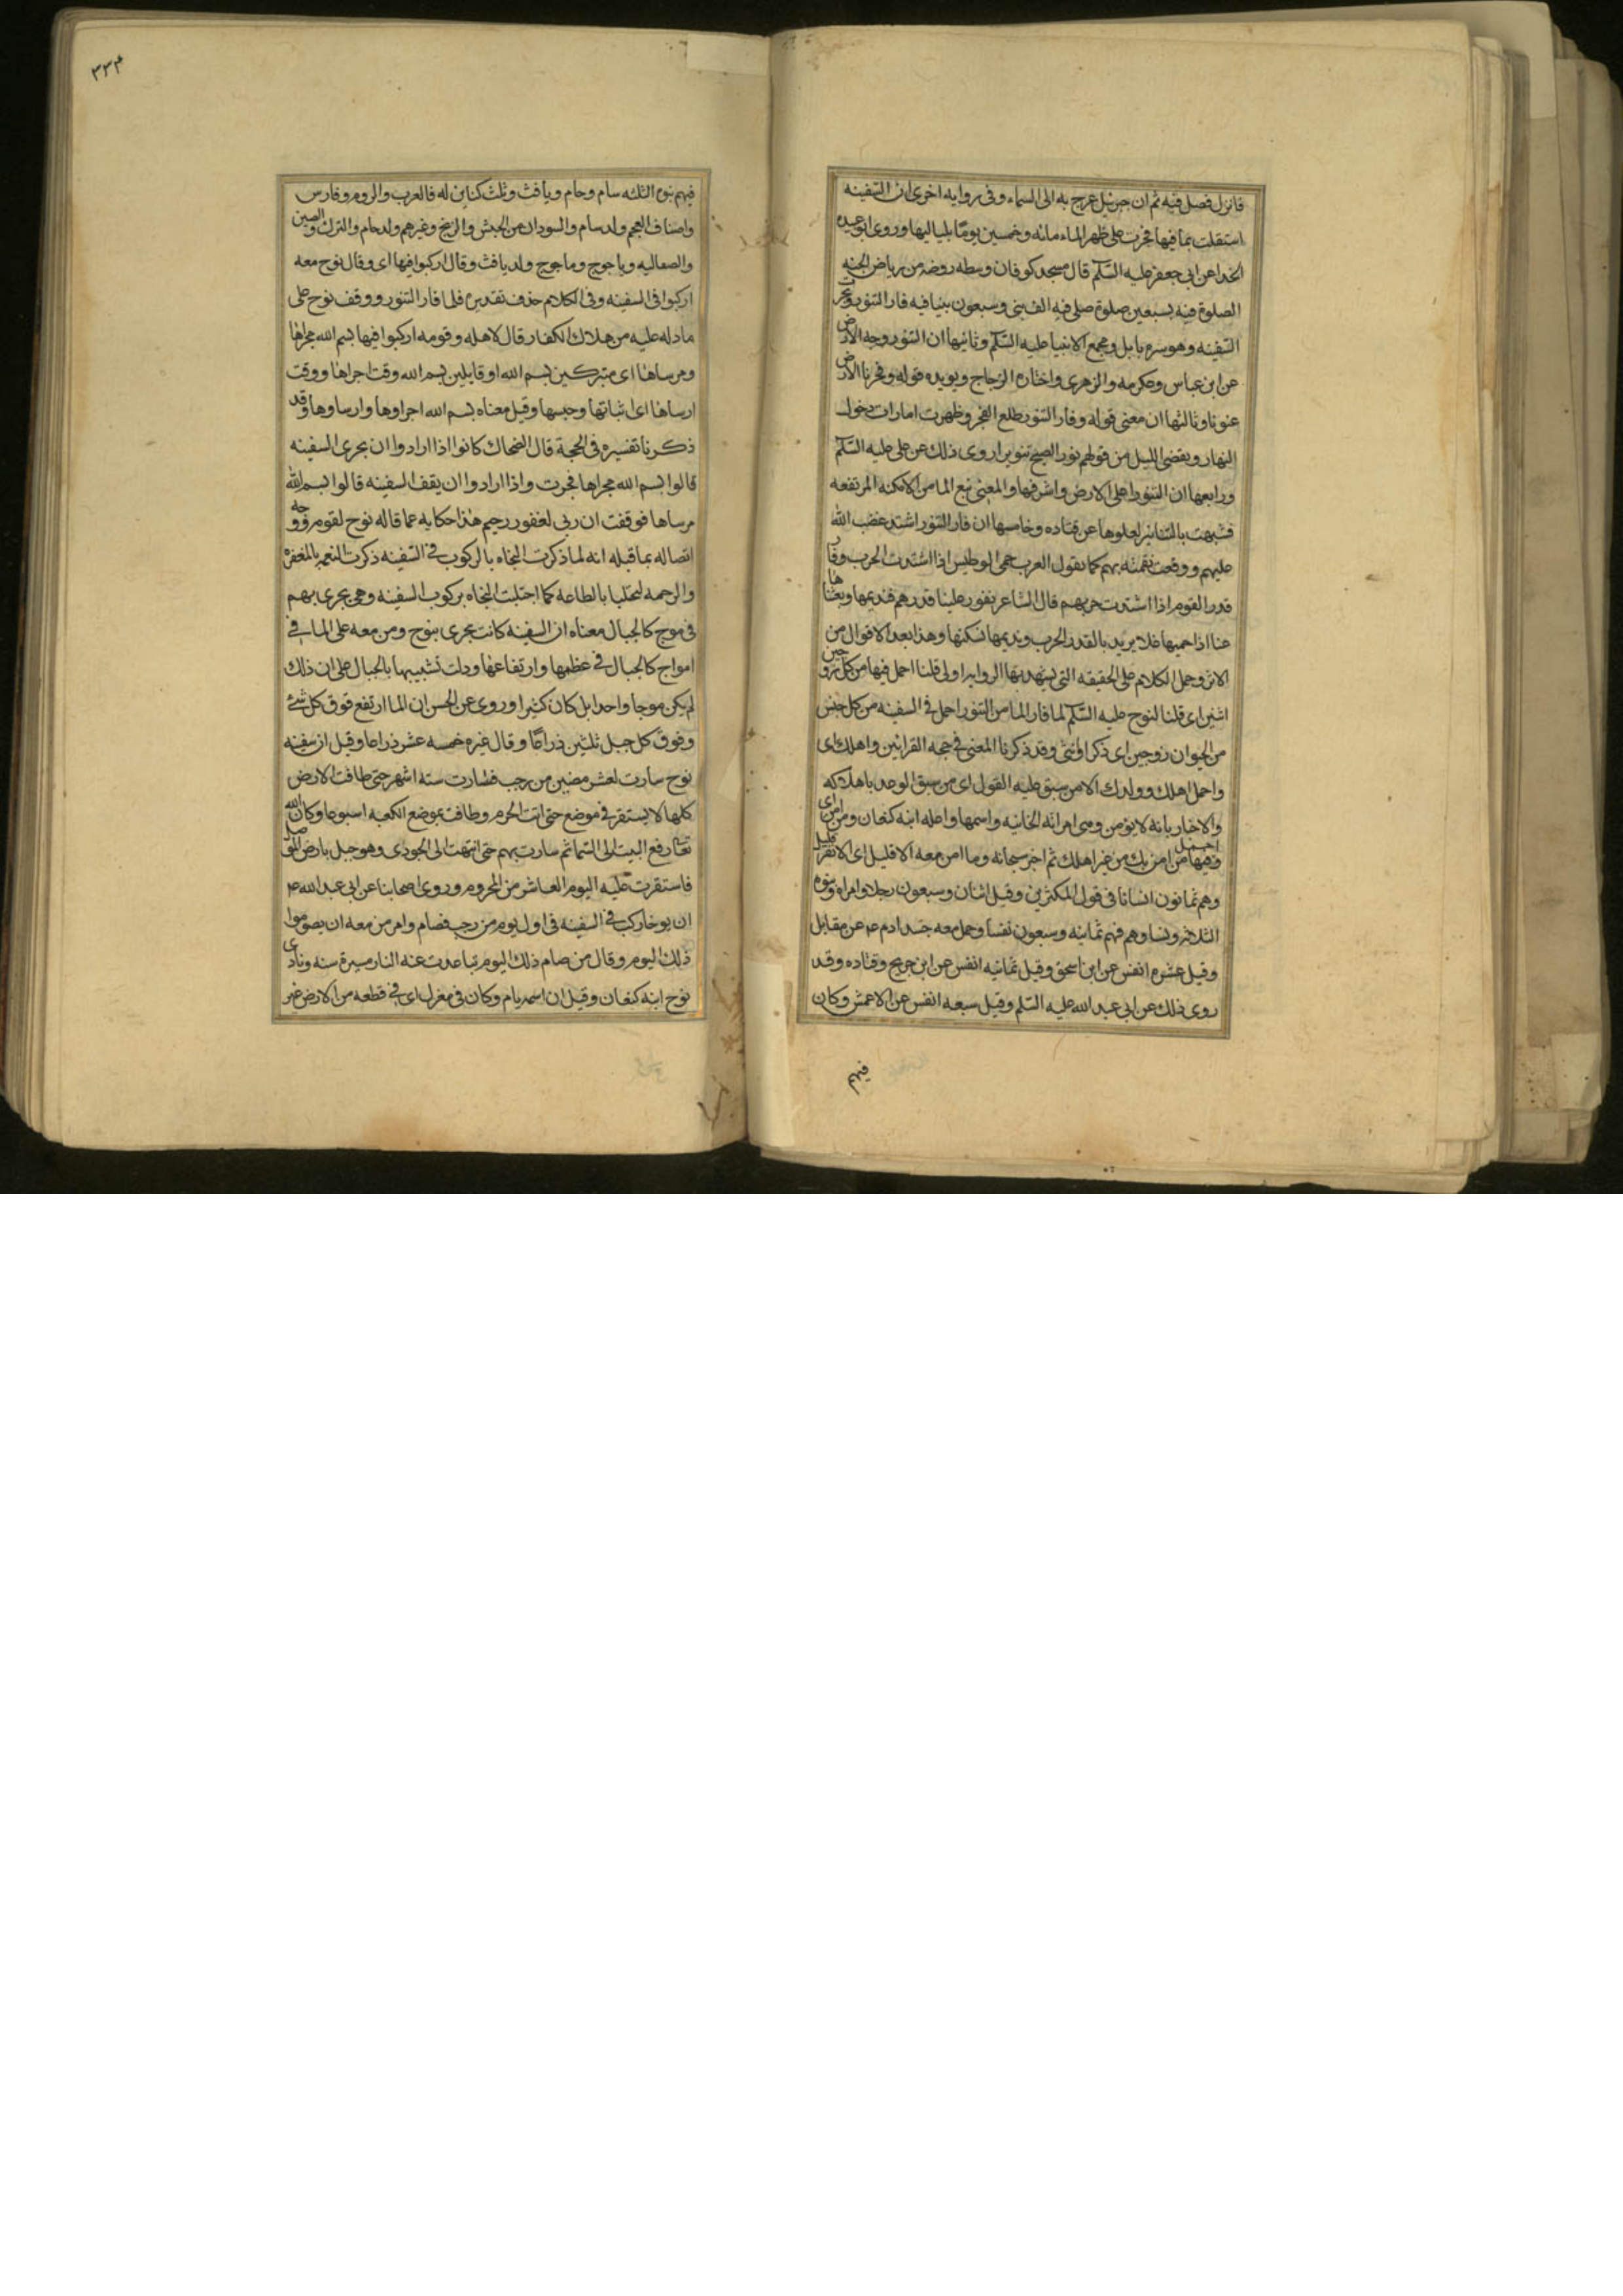 فانزل فصل فيه ثم ان جبرئيل عرج به الى السماء وفى روايه اخرى ان السفينه
استقلت بما فيها فجرت على ظهر الماء مائه وخمسين يوما بلياليها وروى ابو عبيده
الحذا عن ابى جعفر عليه السلم قال مسجد كوفان وسطه روضه من رياض الجنه
الصلوة فيه بسبعين صلوة صلى فيه الف نبى وسبعون نبيا فيه فار التنور ونجر
السفينه وهو سره بابل ومجمع الانبيا عليه السلم وثانيها ان التنور وجه الارض
عن ابن عباس وعكرمه والزهرى واختاره الزجاج ويويده قوله وفجرنا الارض
عنونا وثالثها ان معنى قوله وفار التنور طلع الفجر وظهرت امارات دخول
النهار وبقضى الليل من قولهم نور الصبح تنويرا روى ذلك عن على عليه السلم
ورابعها ان التنور اعلى الارض واشرفها والمعنى نبع الما من الامكنه المرتفعه
فشبهت بالتنانير لعلوها عن قتاده وخامسها ان فار التنور اشتد غضب الله
عليهم ووقعت نقمته بهم كما يقول العرب حمى الوطيس اذا اشتدت الحرب وفار
قدر القوم اذا اشتدت حربهم قال الشاعر تفور علينا قدرهم فنديمها ونفثاها
عنا اذا حميها غلا يريد بالقدر الحرب ونديمها نسكنها وهذا بعد الاقوال من
الاثر وحمل الكلام على الحقيقه التى يشهد بها الروايه اولى قلنا احمل فيها من كل زوجين
اثنين اى قلنا لنوح عليه السلم لما فار الما من التنور احمل فى السفينه من كل جنس
من الحيوان زوجين اى ذكر اوانثى وقد ذكرنا المعنى فى حجه القرائين واهلك اى
واحمل اهلك وولدك الا من سبق عليه القول اى من سبق الوعد باهلاكه
والاخبار بانه لا يومن وهى امراته الخائنه واسمها واعله ابنه كنعان ومن امن اى
احمل فيها من امن بك من غير اهلك ثم اخبر سبحانه وما امن معه الا قليل اى الا نفر قليل
وهم ثمانون انسانا فى قول المكثرين وقيل اثنان وسبعون رجلا وامراه وبنوه
الثلاثه ونساوهم فهم ثمانيه وسبعون نفسا وحمل معه جسد ادم ع عن مقابل
وقيل عشره انفس عن ابن اسحق وقيل ثمانيه انفس عن ابن جريج وقتاده وقد
روى ذلك عن ابى عبد الله عليه السلم وقيل سبعه انفس عن الاعمش وكان
فيهم
٣٣٣
فيهم بنوه الثلثه سام وحام ويافث وثلث كناين له فالعرب والروم وفارس
واصناف العجم ولد سام والسودان من الحبش والزنج وغيرهم ولد حام والترك والصين
والصقاليه وياجوج وماجوج ولد يافث وقال اركبوا فيها اى وقال نوح معه
اركبوا فى السفينه وفى الكلام حذف تقديره فلما فار التنور ووقف نوح على
ما دله عليه من هلاك الكفار قال لاهله وقومه اركبوا فيها بسم الله مجراها
ومرساها اى متبركين بسم الله او قايلين بسم الله وقت اجراها ووقت
ارساها اى اثباتها وحبسها وقيل معناه بسم الله اجراوها وارساوها وقد
ذكرنا تفسيره فى الحجة قال الضحاك كانوا اذا ارادوا ان يجرى السفينه
قالوا بسم الله مجراها فجرت واذا ارادوا ان يقف السفينه قالوا بسم الله
مرساها فوقفت ان ربى لغفور رحيم هذا حكايه عما قاله نوح لقومه ووجه
اتصاله بما قبله انه لما ذكرت النجاه بالركوب فى السفينه ذكرت النعمه بالمغفره
والرحمه لتجتلبا بالطاعه كما اجتلبت النجاه بركوب السفينه وهى يجرى بهم
فى موج كالجبال معناه ان السفينه كانت يجرى بنوح ومن معه على الما فى
امواج كالجبال فى عظمها وارتفاعها ودلت تشبيهها بالجبال على ان ذلك
لم يكن موجا واحدا بل كان كثيرا وروى عن الحسن ان الما ارتفع فوق كل شئ
وفوق كل جبل ثلثين ذراعا وقال غيره خمسه عشر ذراعا وقيل ان سفينه
نوح سارت لعشر مضين من رجب فسارت سته اشهر حتى طافت الارض
كلها لا يستقر فى موضع حتى اتت الحرم وطافت بموضع الكعبه اسبوعا وكان الله
تعالى رفع البيت الى السما ثم سارت بهم حتى انتهت الى الجودى وهو جبل بارض الموصل
فاستقرت عليه اليوم العاشر من المحروم وروى اصحابنا عن ابى عبد الله ع
ان نوحا ركب فى السفينه فى اول يوم من رجب فصام وامر من معه ان يصوموا
ذلك اليوم وقال من صام ذلك اليوم تباعدت عنه النار مسيرة سنه ونادى
نوح ابنه كنعان وقيل ان اسمه يام وكان فى معزل اى فى قطعه من الارض غير